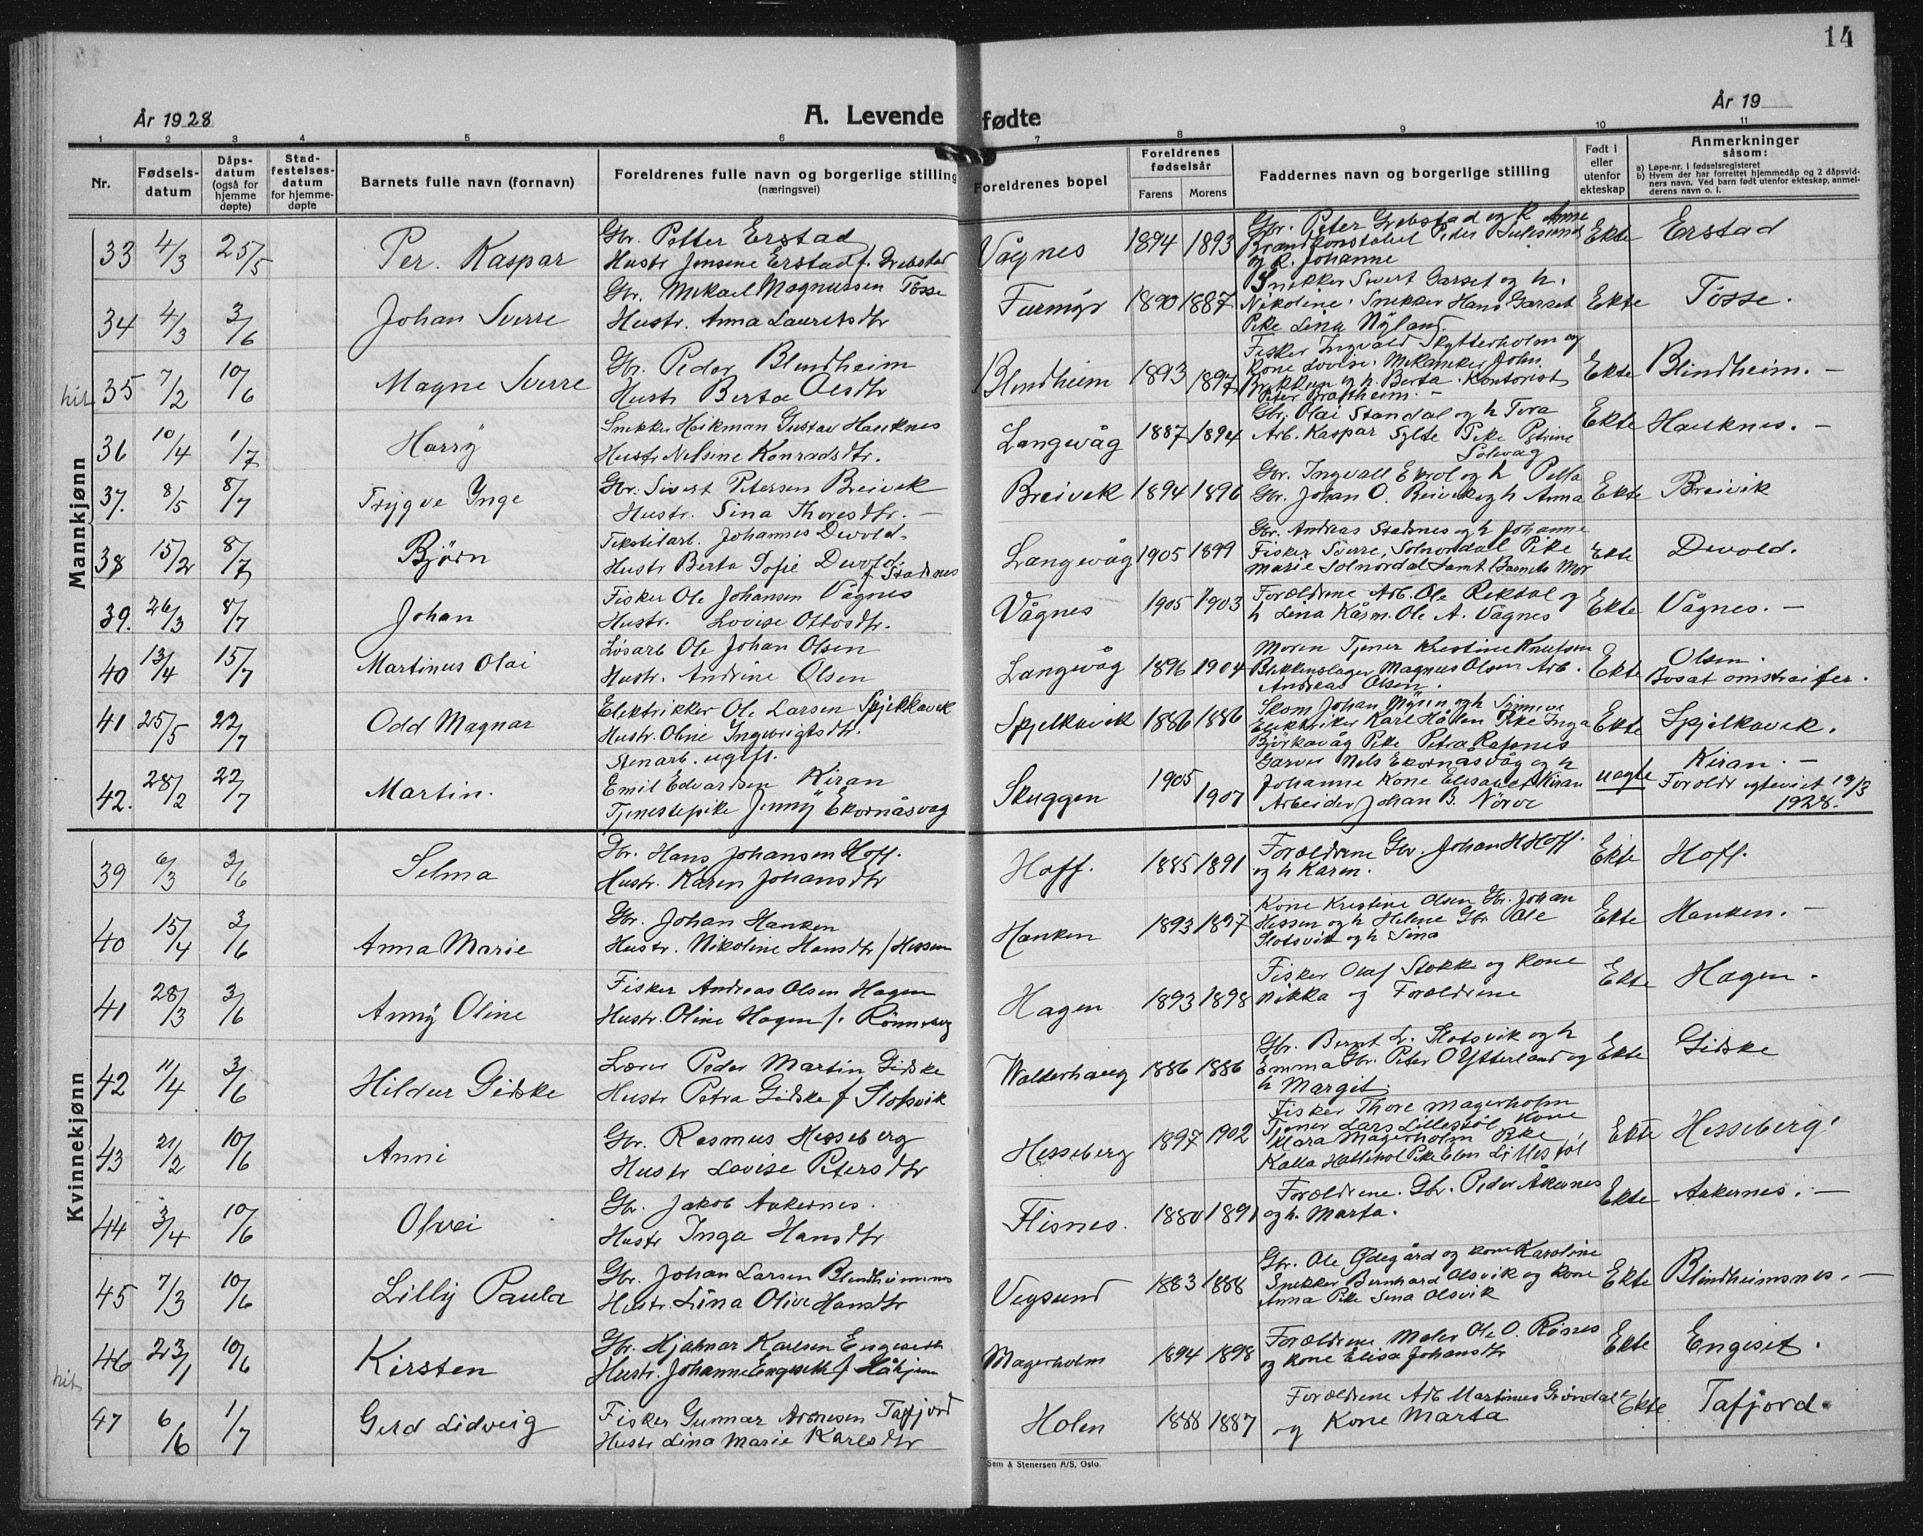 14
År 1928
A. Levende fødte
År 19
1 2 3 4 5 6 7 8 9 10 11
Nr.
Fødsels-
datum
Dåps-
datum
(også for
hjemme
døpte)
Stad-
festelses-
datum
for hjemme-
døpte
Barnets fulle navn (fornavn)
Foreldrenes fulle navn og borgerlige stilling
(næringsvei)
Foreldrenes bopel
Foreldrenes
fødselsår
Farens Morens
Faddernes navn og borgerlige stilling
Født i
eller
utenfor
ekteskap
Anmerkninger
såsom:
a) Løpe-nr. i fødselsregisteret
b) Hvem der har forrettet hjemmedåp og 2 dåpsvid-
ners navn. Ved barn født utenfor ekteskap, anmel-
derens navn o. l.
Mannkjønn
33 4/3 25/5 Per. Kaspar
Gbr. Petter Erstad
Hustr Jensene Erstad f. Grebstad
Vågnes 1894 1893
Gbr. Peter Grebstad og K Anne
Brandkonstabel Peder
og K. Johanne
Ekte Erstad
34 4/3 3/6 Johan Sverre
Gbr. Mikael Magnussen Tosse
Hustr. Anna Lauritsdtr
Furmyr 1890 1887
Snekker Sivert Garset og h.
Nikoline. Snekker Hans Garset
Pike Lina Nyland.
Ekte Tosse.
35 7/2 10/6 Magne Sverre
Gbr. Peder Blindheim
Hustr Berta Olsdtr
Blindheim 1893 1897
Fisker Ingvald Skytterholm og
Kone Lovise. Mekaniker John
Brekken og h. Berta. Kontorist
Peter Brattheim. -
Ekte Blindheim. -
36 10/4 1/7 Harry
Snekker Heikman Gustav Hauknes
Hustr Nelsine Konradsdtr.
Langevåg 1887 1894
Gbr. Olai Standal og h Tora
Arb. Kaspar Sylte Pike Petrine
Solvåg
Ekte Hauknes. -
37. 8/5 8/7 Trygve Inge
Gbr. Sivert Petersen Breivik
Hustr. Sina Thoresdtr. -
Breivik 1894 1896
Gbr. Ingvall Ekrol og h Pella
Gbr. Johan O. Breivik og h Anna
Ekte Breivik
38 15/2 8/7 Bjørn
Tekstilarb. Johannes Devold.
Hustr Berta Sofie Devold.
f. Stadsnes
Langevåg 1905 1899
Gbr. Andreas Stadsnes og h Johanne
Fisker Sverre Solnordal Pike
Marie Solnordal samt Barnets Mor
Ekte Devold.
39. 26/3 8/7 Johan
Fisker Ole Johansen Vågnes
Hustr. Lovise Ottosdtr.
Vågnes 1905 1903
Foreldrene Arb. Ole Rekdal og
h Lina Kårm. Ole A. Vågnes
Ekte Vågnes. -
40 13/4 15/7 Martinus Olai
Løsarb Ole Johan Olsen
Hustr. Andrine Olsen
Langevåg 1896 1904
Moren Tjener Kristine Knutsen
Blikkenslager Magnus Olsen Arb.
Andreas Olsen.
Ekte Olsen.
Bosat omstreifer.
41 25/5 22/7 Odd Magnar
Elektrikker Ole Larsen Spjelkavik
Hustr. Oline Ingebrigtsdtr.
Spjelkavik 1886 1886
Skom Johan Myren og h Synnøve
Elektriker Karl Hållen Pike Inga
Björkavåg Pike Petra Rafsnes
Ekte Spjelkavik.
42. 28/2 22/7 Martin.
Stenarb. ugift.
Emil Edvardsen Kiran
Tjenestepike Jenny Ekornåsvåg
Skuggen 1905 1907
Garver Nils Ekornåsvåg og h
Johanne Kone Elisabet Kiran
Arbeider Johan B. Nörve
uegte Kiran. -
Foreldr egteviet 19/3
1928.
Kvinnekjønn
39 6/3 3/6 Selma
Gbr. Hans Johansen Hoff.
Hustr. Karen Johansdtr
Hoff. 1885 1891
Foreldrene Gbr. Johan H Hoff.
og h Karen.
Ekte Hoff.
40 15/4 3/6 Anna Marie
Gbr. Johan Hanken
Hustr. Nikoline Hansdtr / Hessen
Hanken 1893 1897
Kone Kristine Olsen Gbr. Johan
Hessen og h Helene Gbr. Ole
Slotsvik og h Sina
Ekte Hanken. -
41 28/3 3/6 Anny Oline
Fisker Andreas Olsen Hagen
Hustr. Oline Hagen f. Rønneberg
Hagen 1893 1898
Fisker Olaf Stokke og kone
Rikka og Foreldrene
Ekte Hagen.
42 11/4 3/6 Hildur Gidske
Lærer Peder Martin Gidske
Hustr Petra Gidske f Slotsvik
Walderhaug 1886 1886
Gbr. Bernt L. Slotsvik og h
Emma Gbr. Peter O Ytterland og
h Margit.
Ekte Gidske
43 21/2 10/6 Anni
Gbr. Rasmus Hesseberg
Hustr Lovise Petersdtr
Hesseberg 1897 1902
Fisker Thore Magerholm
Tjener Lars Lillestöl Kone
Klara Magerholm Pike
Kalla Pike Lillestöl
Ekte Hesseberg
44 3/4 10/6 Olvei
Gbr. Jakob Aakernes.
Hustr Inga Hansdtr
Flisnes. 1880 1891
Foreldrene. Gbr. Peder Åkernes
og h. Marta.
Ekte Aakernes. -
45 7/3 10/6 Lilly Paula
Gbr. Johan Larsen Blindheimsnes
Hustr. Lina Olive Hansdtr
Vegsund 1883 1888
Gbr. Ole Ødegård og kone Karoline
Snekker Bernhard Olsvik og kone
Anna Pike Sena Olsvik
Ekte Blindheimsnes. -
46 23/1 10/6 Kirsten
Gbr. Hjalmar Karlsen Engeseth
Hustr. Johanne Engeseth f
Magerholm 1894 1898
Foreldrene Maler Ole O. Rønes
og kone Elisa Johansdtr
Ekte Engeset.
47 6/6 1/7 Gerd Lidveig
Fisker Gunnar Arnesen Tafjord
Hustr Lina Marie Karlsdtr
Holen 1888 1887
Foreldrene Arb Martinus Grøndal
og Kone Marta
Ekte Tafjord.
Sem & Stenersen A/S, Oslo.